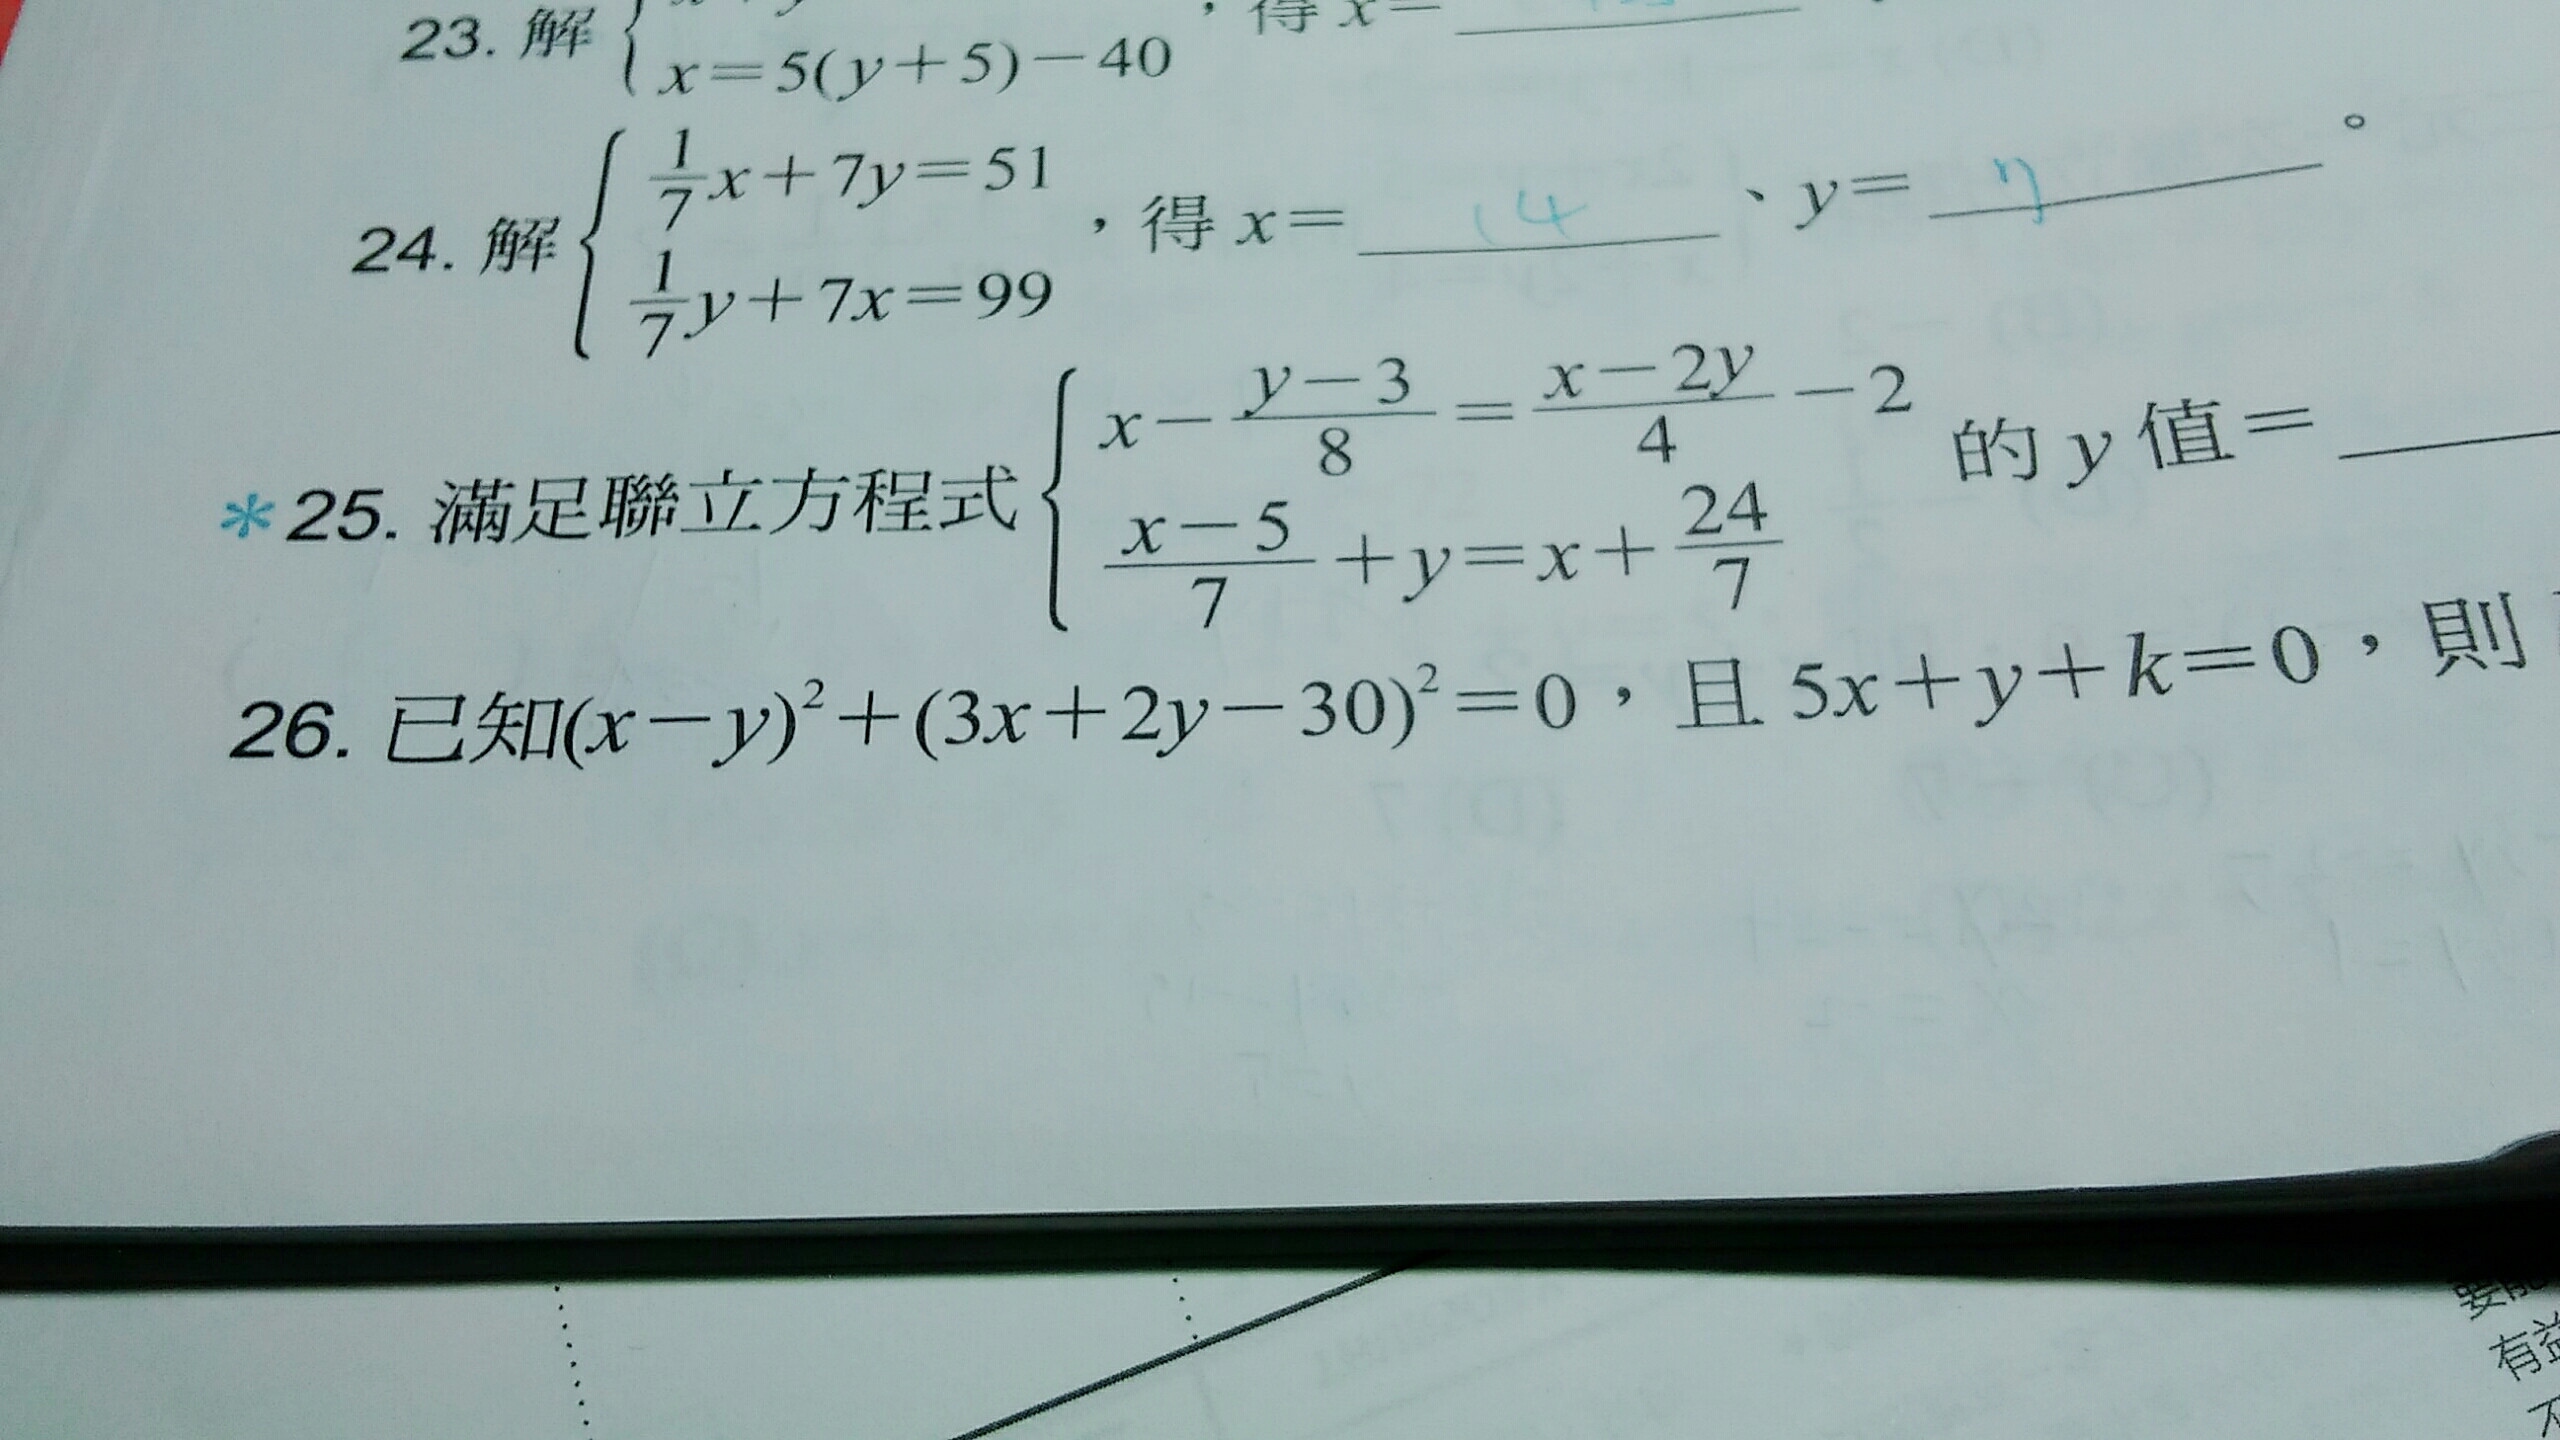 23. 解 { x=5(y+5)-40 ，得 x=
24. 解 { 1/7 x+7y=51
1/7 y+7x=99 ，得 x= 14 、y= 7 。
*25. 滿足聯立方程式 { x-(y-3)/8=(x-2y)/4-2
(x-5)/7+y=x+24/7 的 y 值=
26. 已知(x-y)²+(3x+2y-30)²=0，且 5x+y+k=0，則
有益